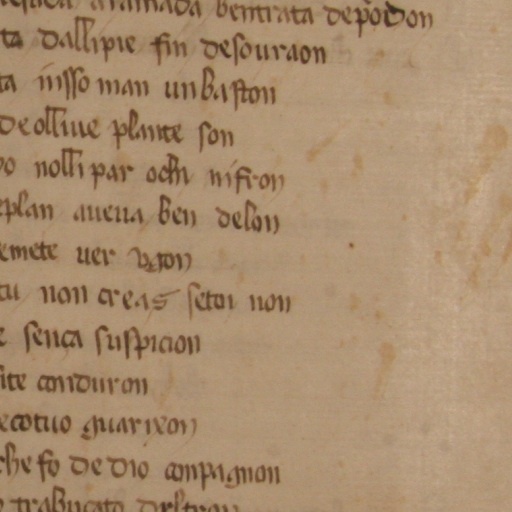 aramada bentrata de podon
ta dallipie fin desouraon
ta insso man un baston
de olliue plante son
no nolli par ochi ni fron
eplan aueua ben delon
emete uer ugon
tu non creas se toi non
e sença suspicion
ite conduron
ecotuo guarixon
che fo de dio conpagnon
trabucato